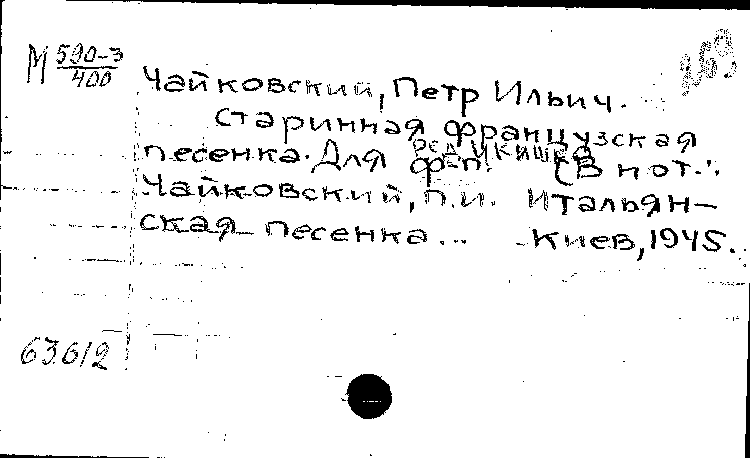 М 590-3
400
Чайковский, Петр Ильич.
Старинная французская
песенка. Для ф-п. (В нот.:
Чайковский, П.И. Итальян-
ская песенка... Киев, 1945.
63612